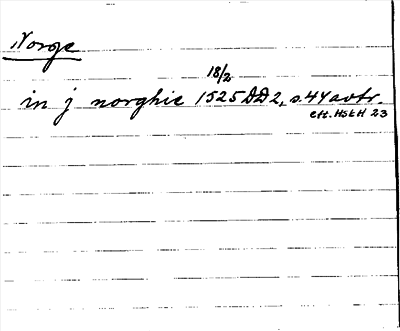 Norge
18/2
in j norghie 1525 DD2, s. 44 avtr.
eft. HSkH 23